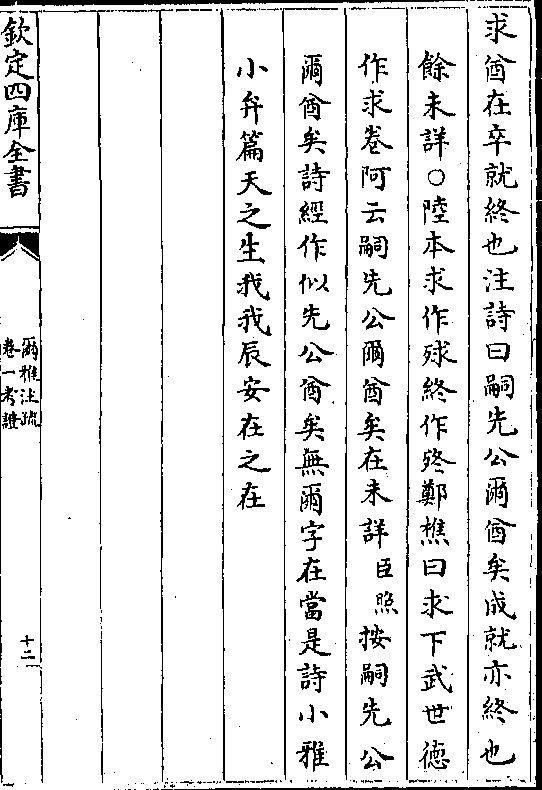 求酋在卒就終也注詩曰嗣先公爾酋矣成就亦終也
餘未詳○陸本求作殏終作㱳鄭樵曰求下武世徳
作求卷阿云嗣先公爾酋矣在未詳臣照按嗣先公
爾酋矣詩經作似先公酋矣無爾字在當是詩小雅
小弁篇天之生我我辰安在之在
欽定四庫全書
爾雅注疏
卷一考證
十二